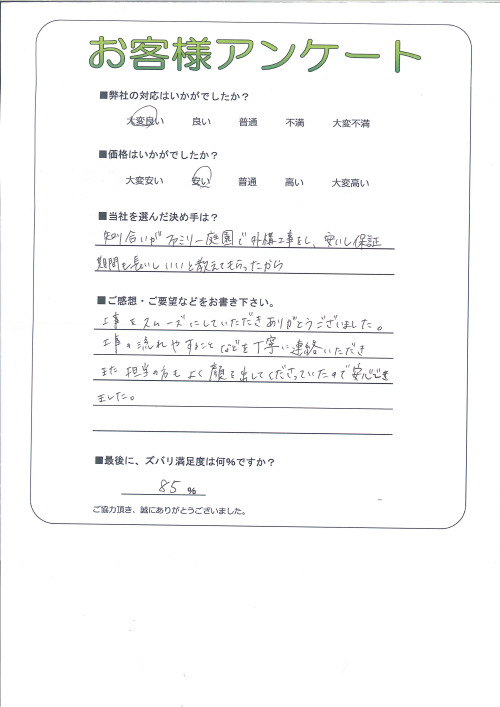 お客様アンケート
■弊社の対応はいかがでしたか？
大変良い 良い 普通 不満 大変不満
■価格はいかがでしたか？
大変安い 安い 普通 高い 大変高い
■当社を選んだ決め手は？
知り合いがファミリー庭園で外構工事をし、安いし保証
期間も長いしいいと教えてもらったから
■ご感想・ご要望などをお書き下さい。
工事をスムーズにしていただきありがとうございました。
工事の流れやすることなどを丁寧に連絡いただき
また担当の方もよく顔を出してくださっていたので安心でき
ました。
■最後に、ズバリ満足度は何％ですか？
85 %
ご協力頂き、誠にありがとうございました。